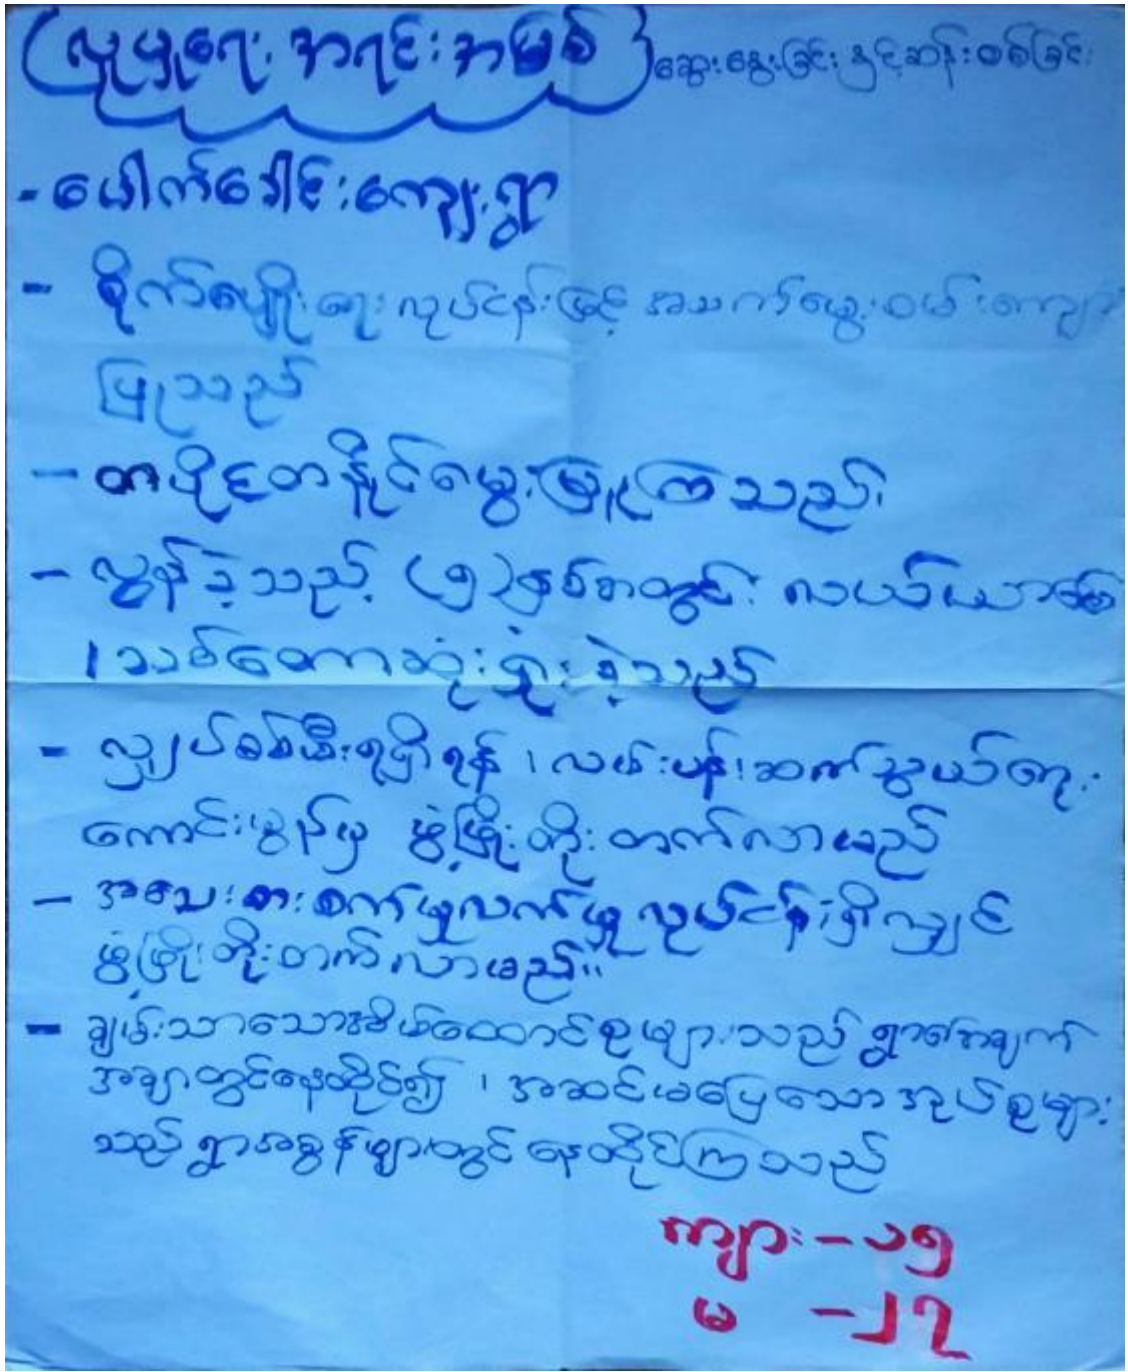 (လူမှုရေး အရင်းအမြစ်) ဆွေးနွေးခြင်း နှင့်ဆန်းစစ်ခြင်း
- ပေါက်ခေါင်းကျေးရွာ
- စိုက်ပျိုးရေးလုပ်ငန်းဖြင့် အသက်မွေးဝမ်းကျောင်း
ပြုသည်
- တပိုင်တနိုင်မွေးမြူကြသည်။
- လွန်ခဲ့သည့် (၅)နှစ်အတွင်း လယ်ယာမြေ
၊ သစ်တောဆုံးရှုံးခဲ့သည်
- လျှပ်စစ်မီးရရှိရန် ၊ လမ်းပန်းဆက်သွယ်ရေး
ကောင်းမွန်မှ ဖွံ့ဖြိုးတိုးတက်လာမည်
- အသေးစားစက်မှုလက်မှုလုပ်ငန်းရှိလျှင်
ဖွံ့ဖြိုးတိုးတက်လာမည်။
- ချမ်းသာသောအိမ်ထောင်စုများသည် ရွာ၏အချက်
အချာတွင်နေထိုင်၍ ၊ အဆင်မပြေသောအုပ်စုများ
သည် ရွာအစွန်များတွင် နေထိုင်ကြသည်
ကျား - ၁၅
မ - ၂၇